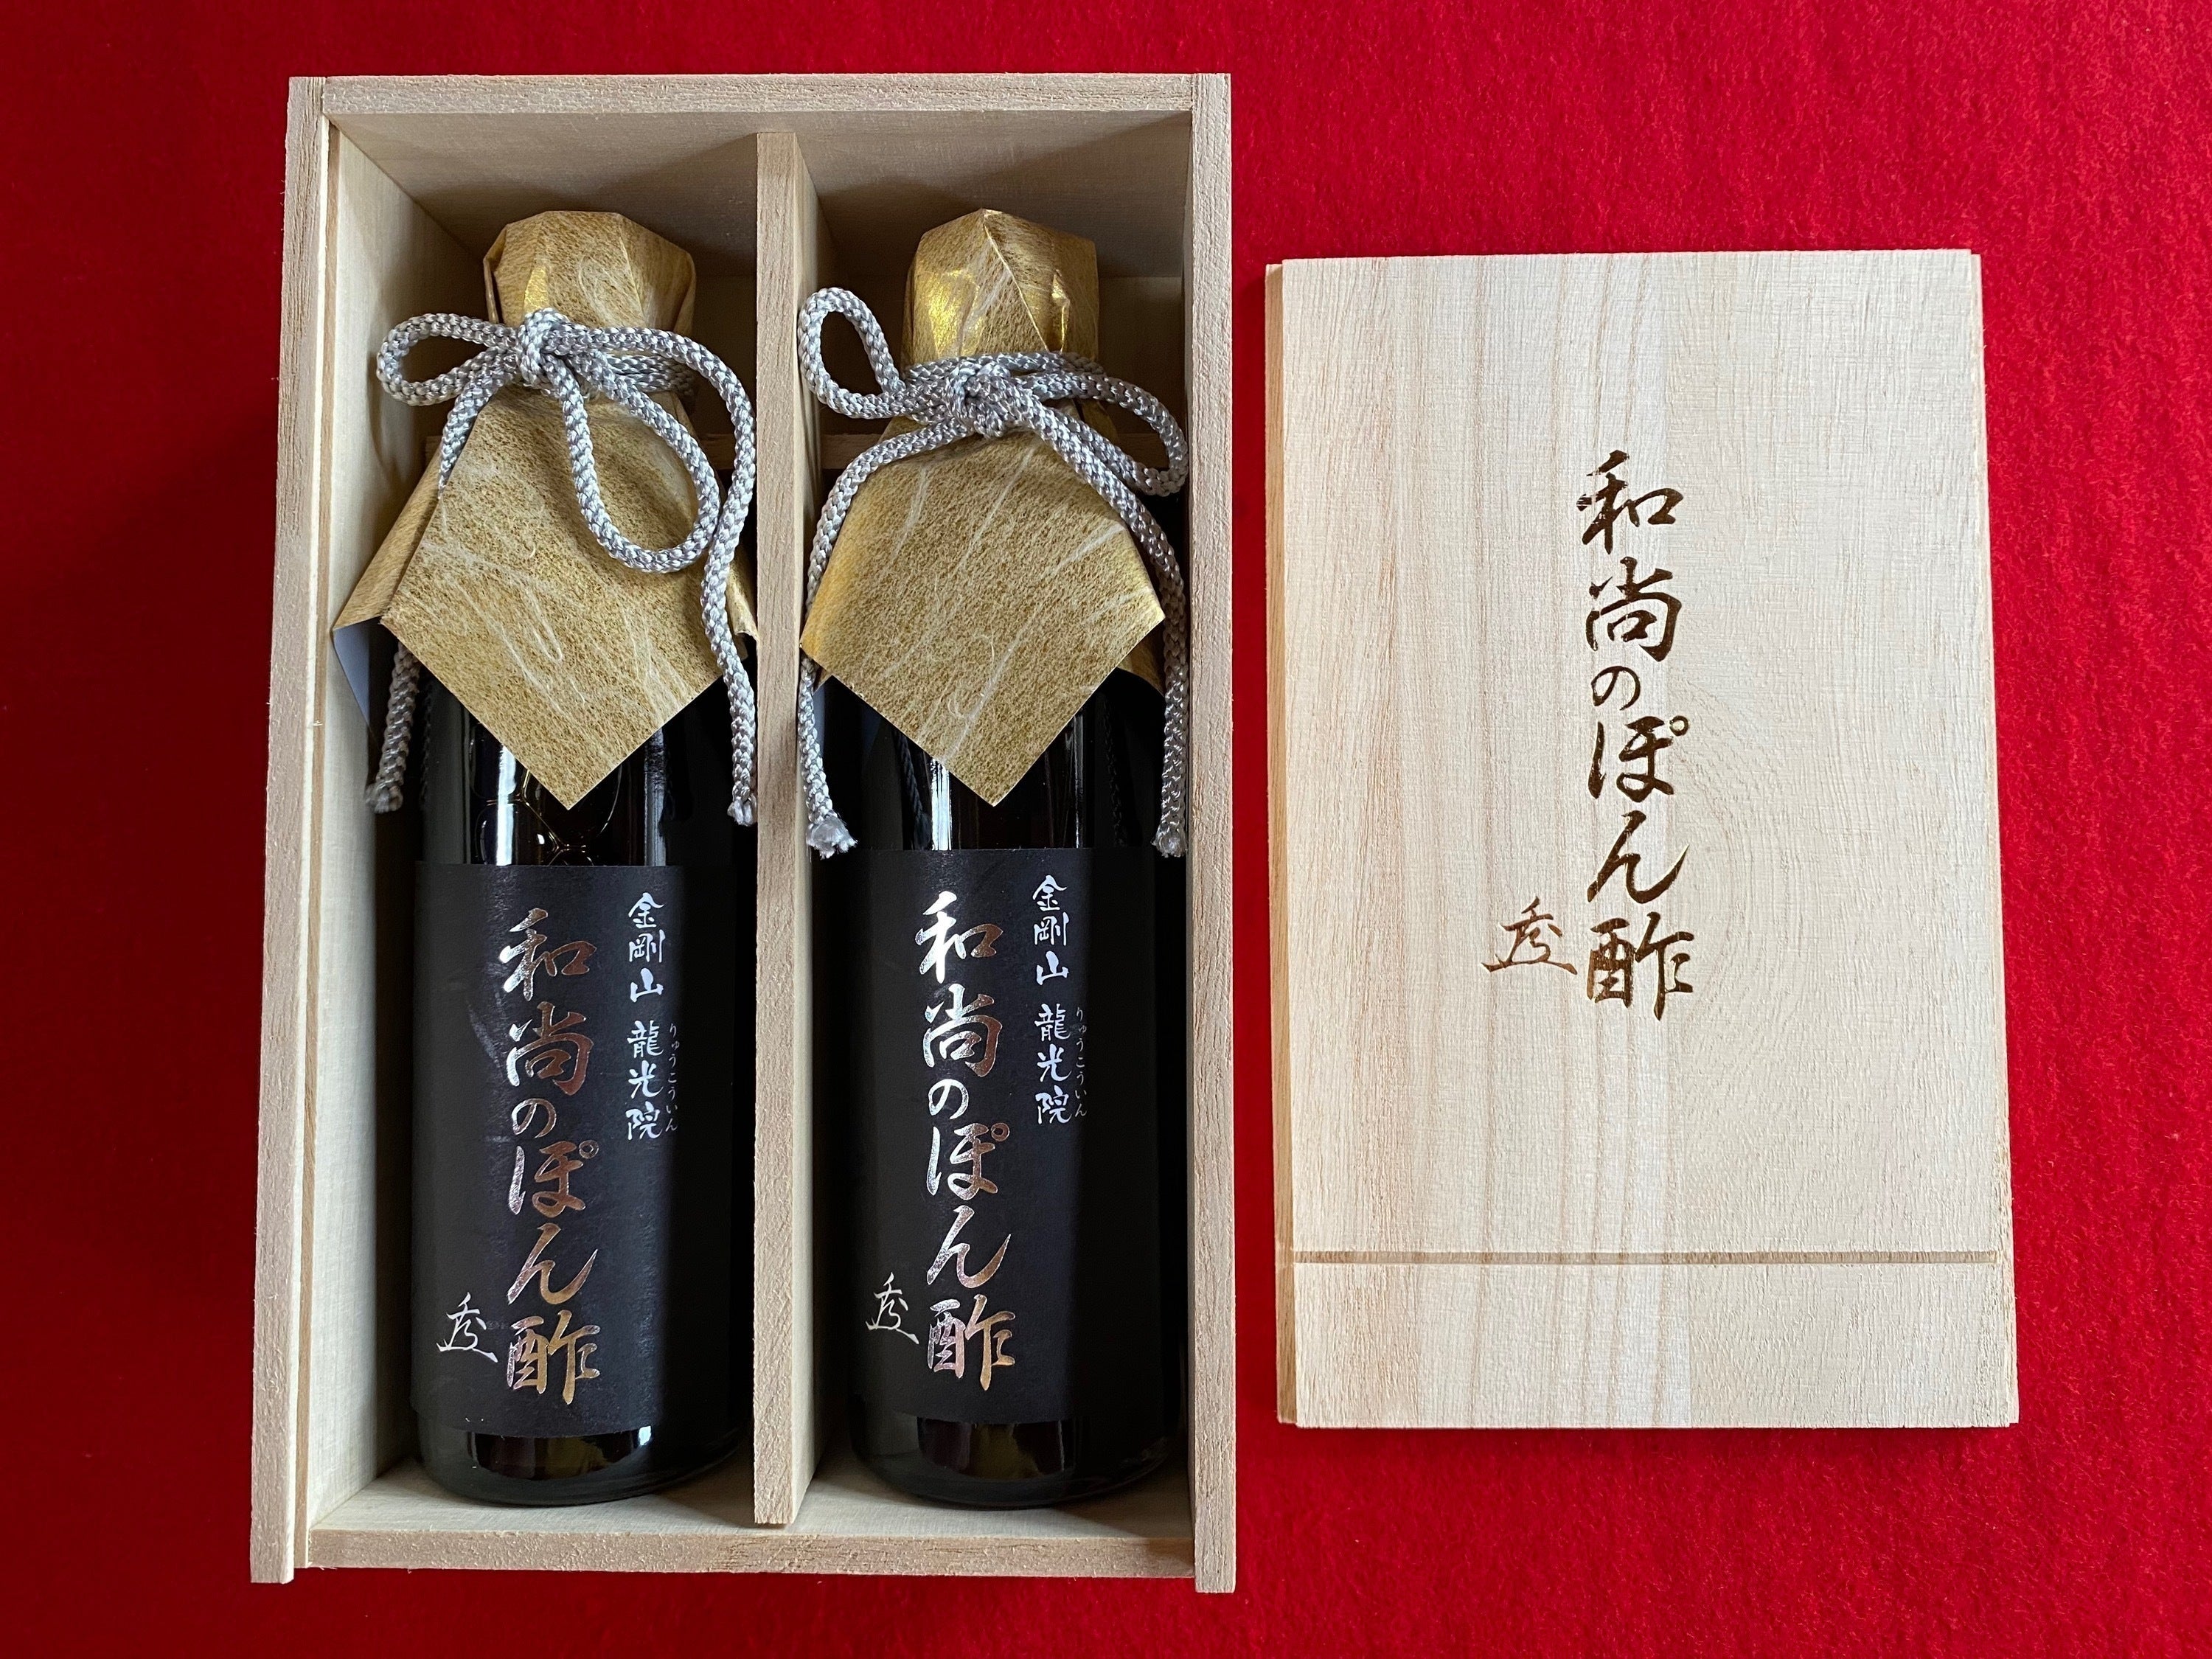 金剛山 龍光院
りゅうこういん
和尚のぽん酢
金剛山 龍光院
りゅうこういん
和尚のぽん酢
和尚のぽん酢